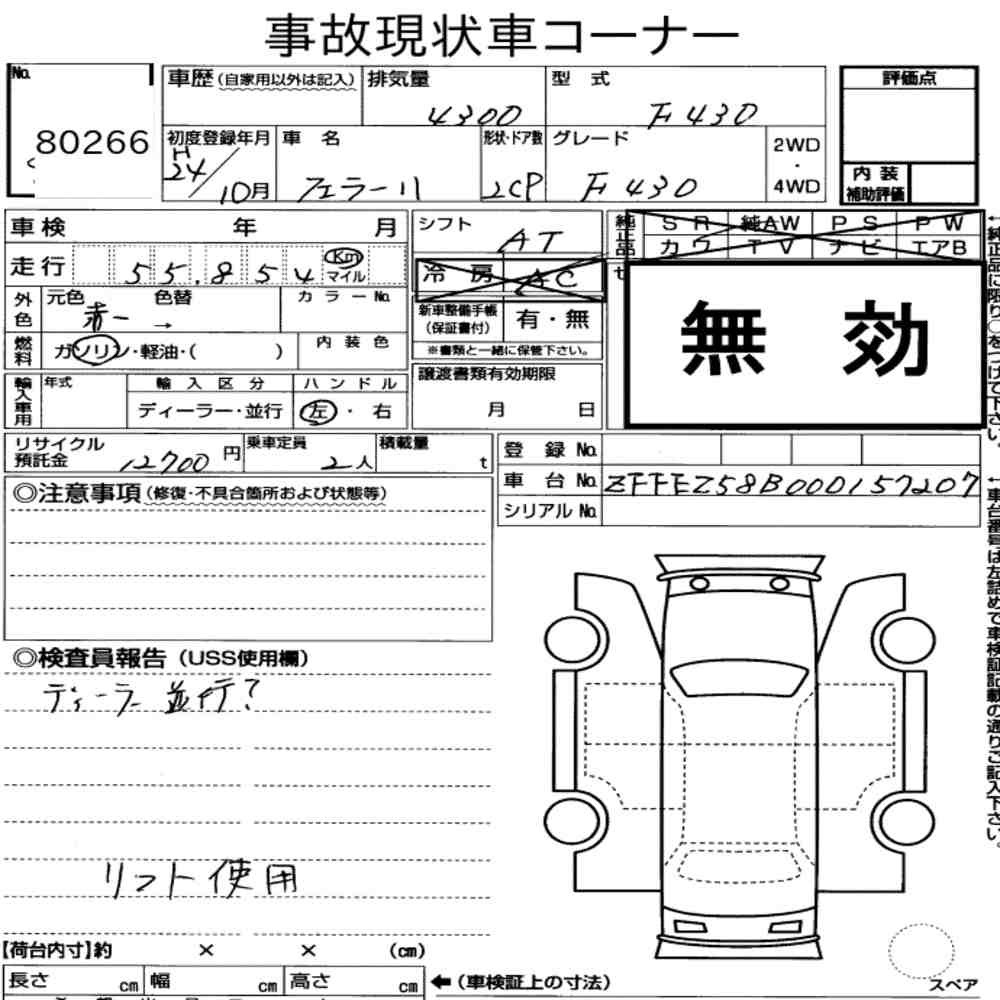 事故現状車コーナー
No. 80266
車歴(自家用以外は記入) 排気量 4300 型式 F430
評価点
初度登録年月 H24/10月 車名 フェラーリ 形状・ドア数 2CP グレード F430 2WD・4WD
内装補助評価
車検 年 月
シフト AT
純正品 SR 純AW PS PW
カワ TV ナビ エアB
走行 55.854 Km マイル
冷房 AC
無効
外色 元色 赤一 → 色替 カラーNo.
新車整備手帳(保証書付) 有・無
※書類と一緒に保管下さい。
燃料 ガソリン・軽油・( ) 内装色
譲渡書類有効期限
月 日
輸入車用 年式 輸入区分 ハンドル
ディーラー・並行 左・右
リサイクル預託金 12700円 乗車定員 2人 積載量 t
登録No.
車台No. ZFFEZ58B000157207
シリアルNo.
◎注意事項(修復・不具合箇所および状態等)
◎検査員報告(USS使用欄)
ディーラー並行?
リフト使用
【荷台内寸】約 × × (cm)
長さ cm 幅 cm 高さ cm ←(車検証上の寸法)
スペア
←純正品に限り○をつけて下さい。
←車台番号は左詰めで車検証記載の通りご記入下さい。